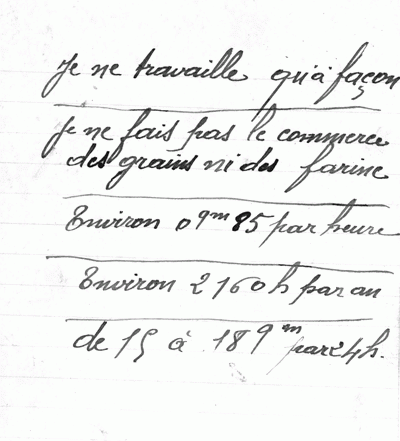 Je ne travaille qu'à façon
Je ne fais pas le commerce
des grains ni des farine
Environ 0 qm 85 par heure
Environ 2160 h par an
de 15 à 18 qm par 24 h.